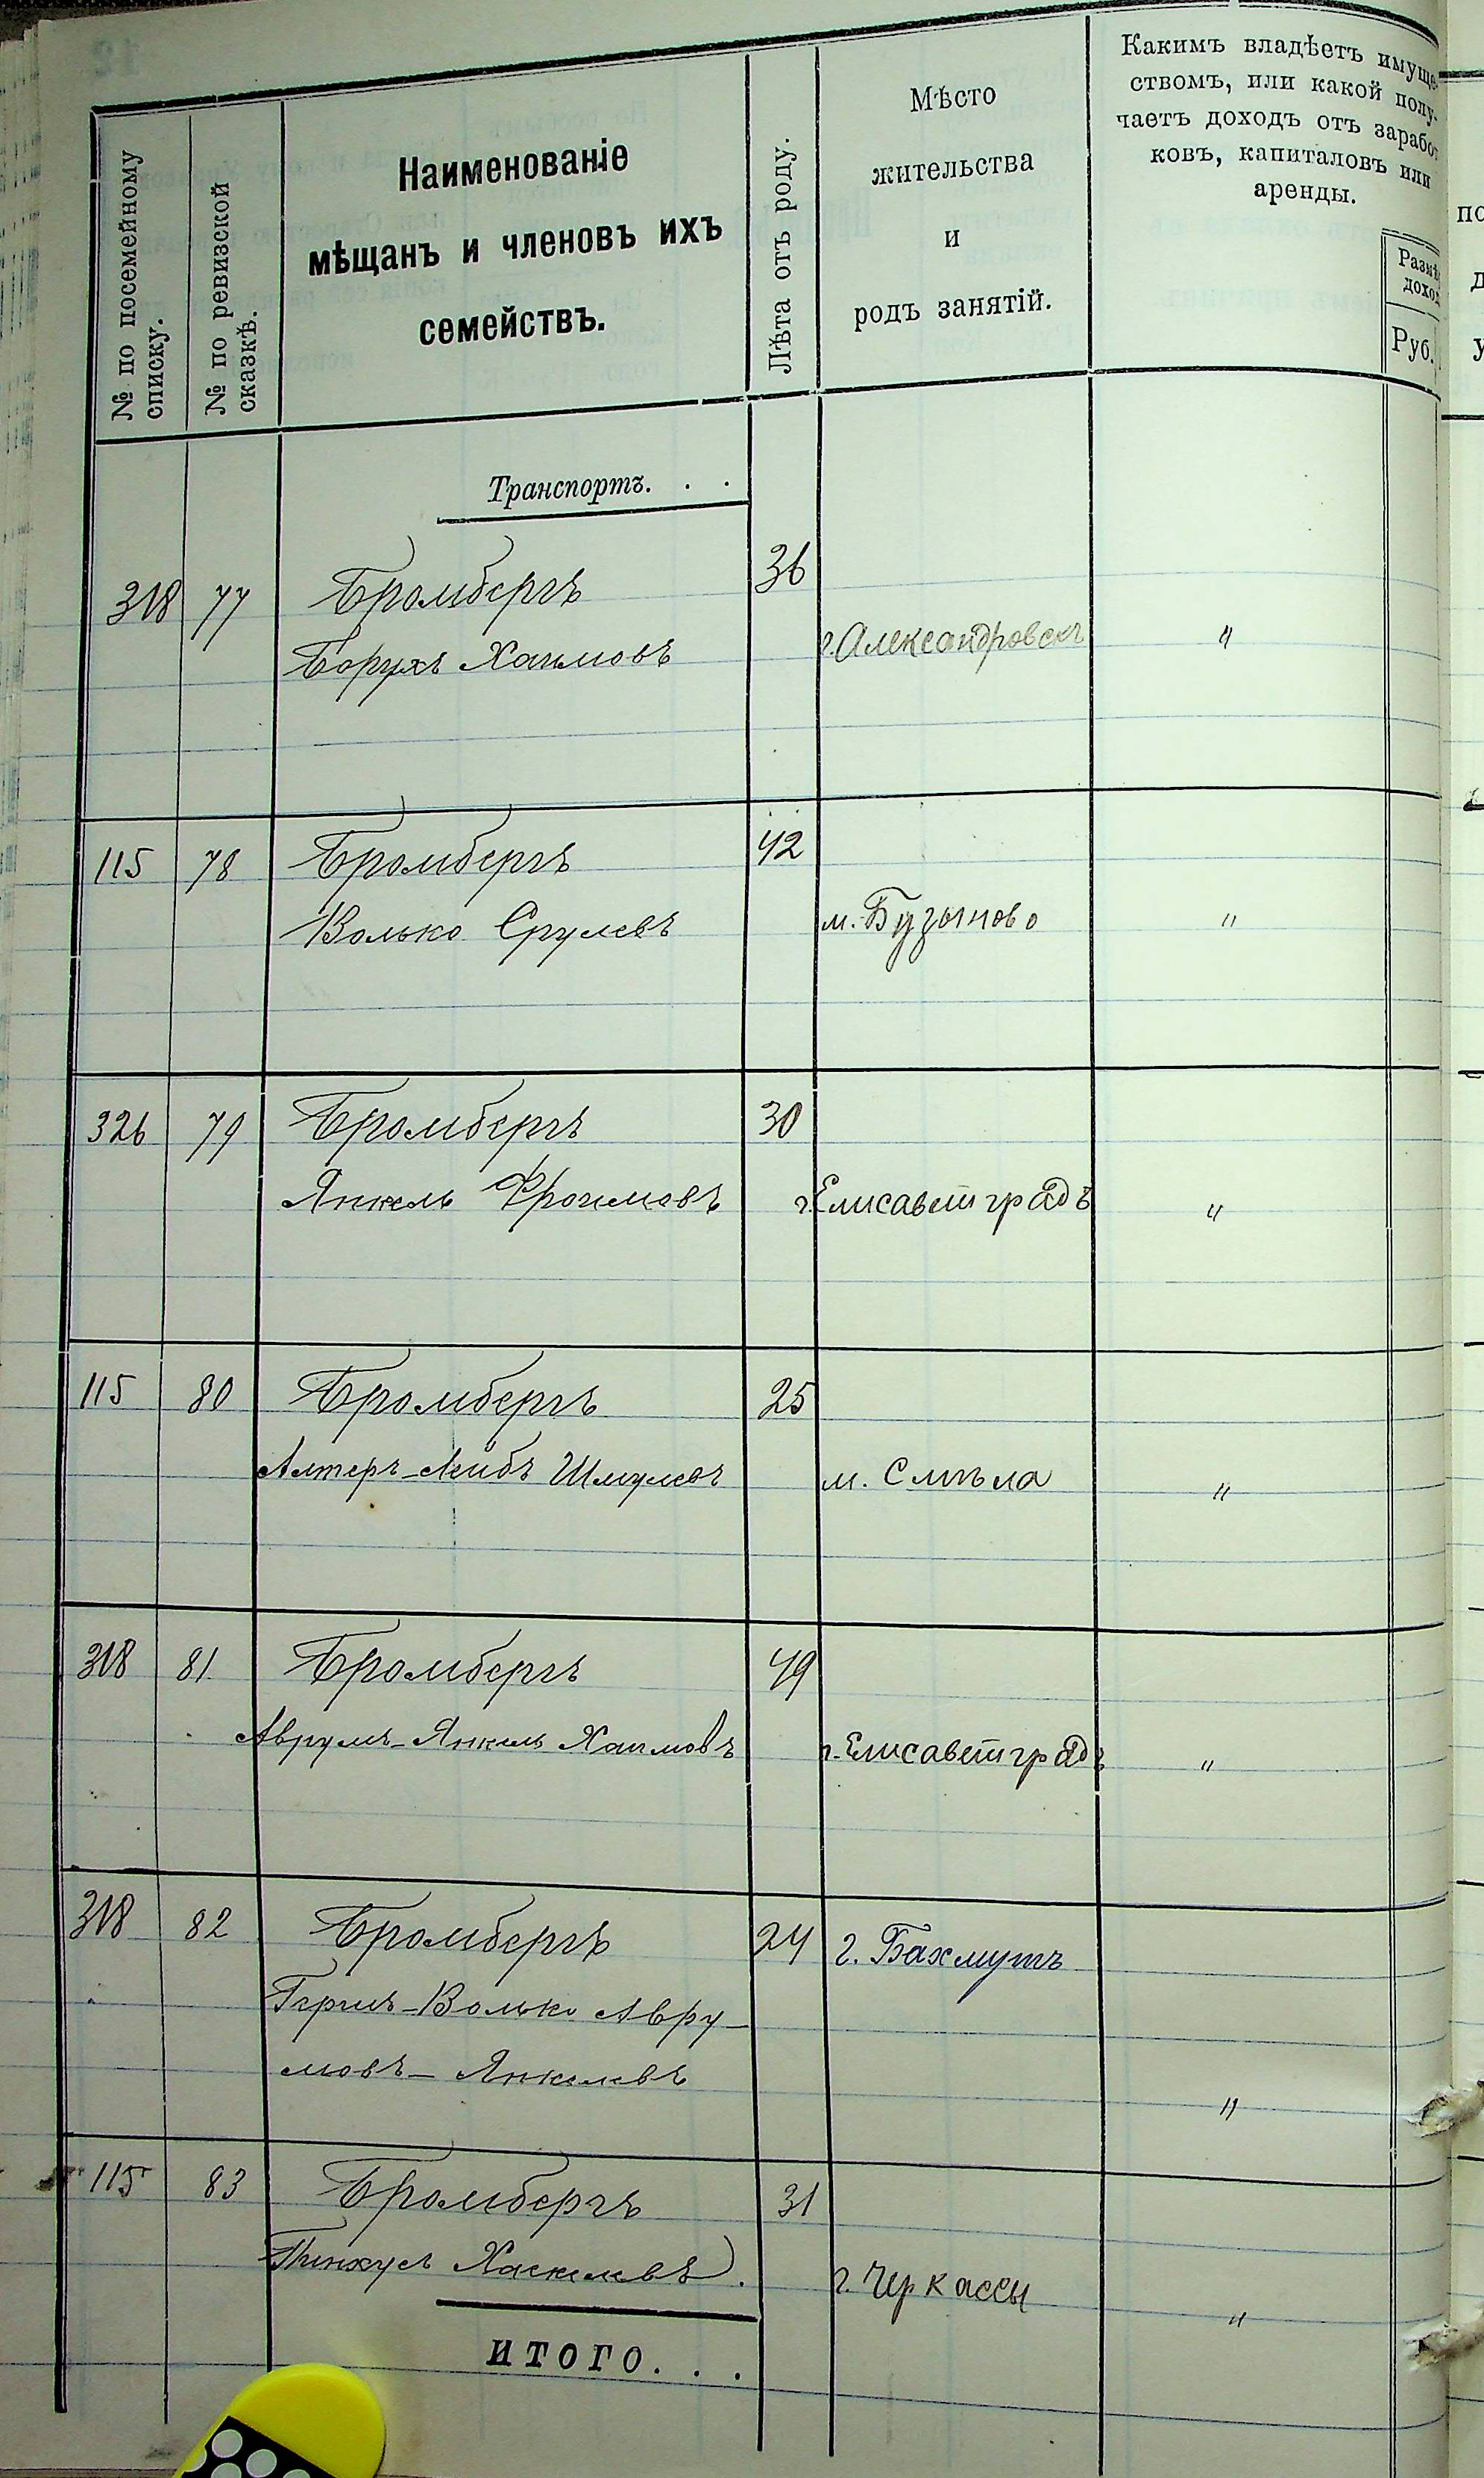 № по посемейному
списку.
№ по ревизской
сказкѣ.
Наименованіе
мѣщанъ и членовъ ихъ
семействъ.
Лѣта отъ роду.
Мѣсто
жительства
и
родъ занятій.
Какимъ владѣетъ имуще-
ствомъ, или какой полу-
чаетъ доходъ отъ заработ
ковъ, капиталовъ или
аренды.
Размѣ
доход
Руб.
Транспортъ. . .
318 77 Бромбергъ 36
Борухъ Хаимовъ г. Александровскъ "
115 78 Бромбергъ 42
Волько Срулевъ м. Бузыново "
326 79 Бромбергъ 30
Янкель Фроимовъ г. Елисаветградъ "
115 80 Бромбергъ 25
Алтеръ-Лейбъ Шмулевъ м. Смѣла "
318 81 Бромбергъ 49
Аврумъ-Янкель Хаимовъ г. Елисаветградъ "
318 82 Бромбергъ 24 г. Бахмутъ
Герш-Волько Авру-
мовъ-Янкелевъ "
115 83 Бромбергъ 31
Пинхусъ Хаскелевъ. г. Черкассы "
итого. . .